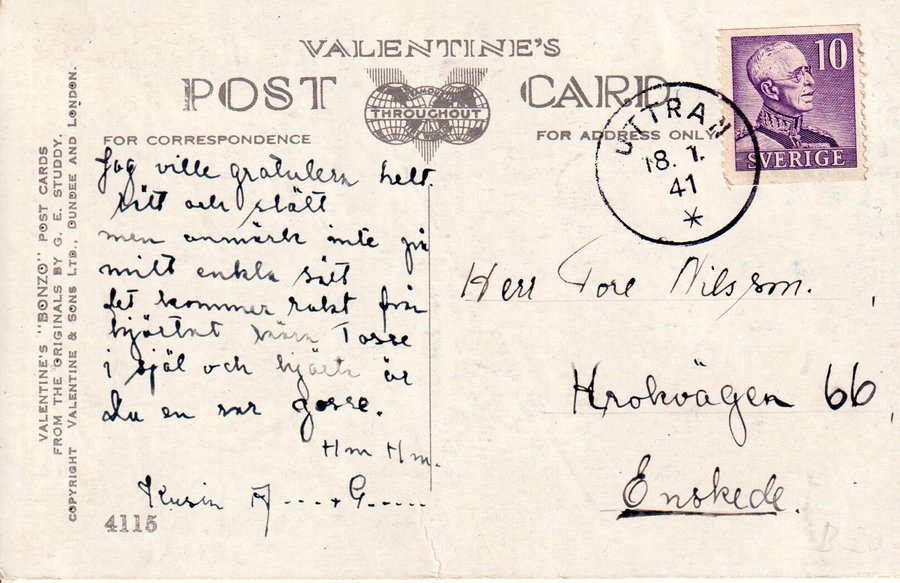 VALENTINE'S
POST CARD
FAMOUS
THROUGHOUT
FOR CORRESPONDENCE
FOR ADDRESS ONLY
10
SVERIGE
UTTRAN
18. 1.
41
Jag ville gratulera helt
sött och slätt
men anmärk inte på
mitt enkla sätt
det kommer rakt från
hjärtat Tosse
i själ och hjärta är
du en rar gosse.
Hm Hm.
Kusin A----+G-----
Herr Tore Nilsson.
Krokvägen 66,
Enskede.
VALENTINE'S "BONZO" POST CARDS
FROM THE ORIGINALS BY G. E. STUDDY.
COPYRIGHT VALENTINE & SONS LTD., DUNDEE AND LONDON.
4115